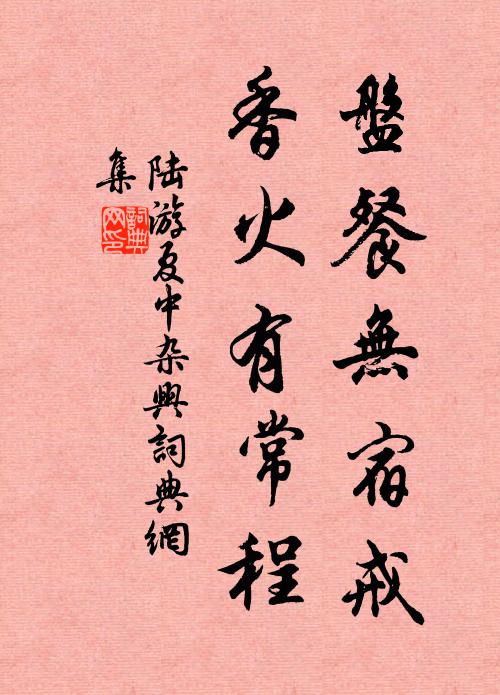 盤餐無宿戒
香火有常程
陸游夏中杂興詞典網
集
詞典
网印